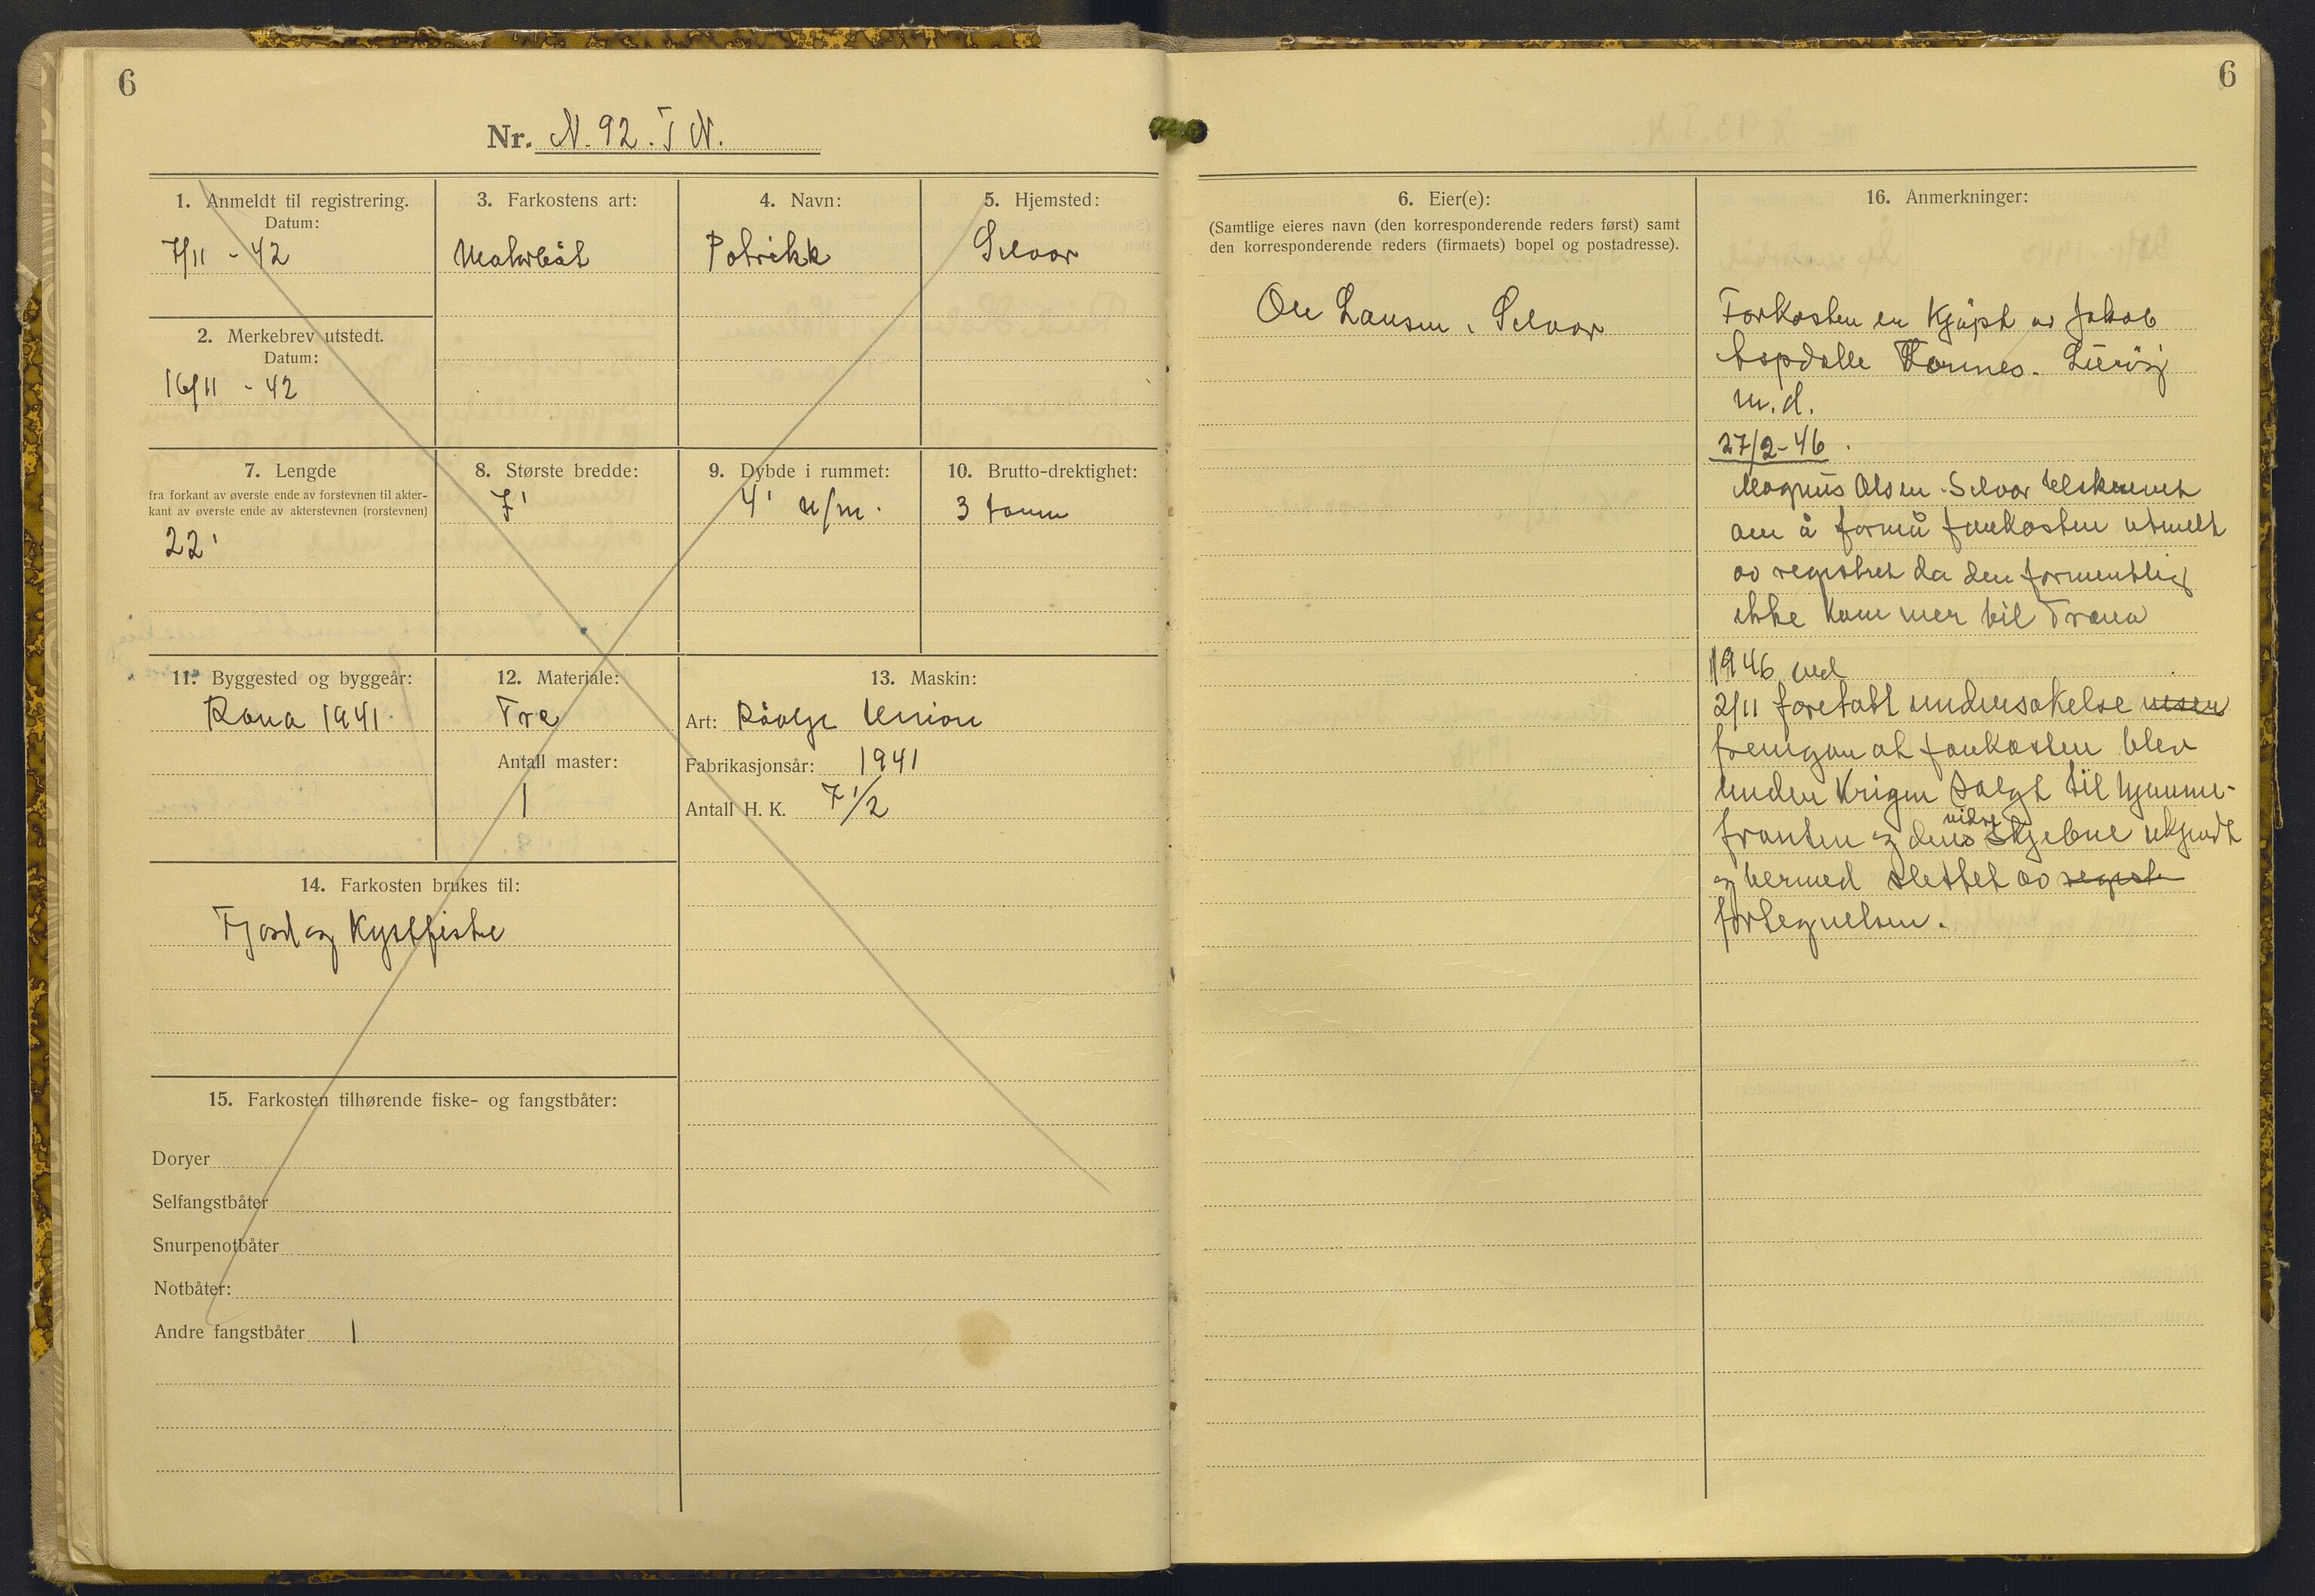 6
Nr. N. 92. T N.
1. Anmeldt til registrering.
Datum:
7/11 - 42
2. Merkebrev utstedt.
Datum:
16/11 - 42
3. Farkostens art:
Motorbåt
4. Navn:
Patrikk
5. Hjemsted:
Selvær
7. Lengde
fra forkant av øverste ende av forstevnen til akter-
kant av øverste ende av akterstevnen (rorstevnen)
22'
8. Største bredde:
7'
9. Dybde i rummet:
4' u/m.
10. Brutto-drektighet:
3 tonn
11. Byggested og byggeår:
Rana 1941.
12. Materiale:
Tre
Antall master:
1
13. Maskin:
Art: Råolje Union
Fabrikasjonsår: 1941
Antall H. K. 7 1/2
14. Farkosten brukes til:
Fjord og Kystfiske
15. Farkosten tilhørende fiske- og fangstbåter:
Doryer
Selfangstbåter
Snurpenotbåter
Notbåter:
Andre fangstbåter 1
6
6. Eier(e):
(Samtlige eieres navn (den korresponderende reders først) samt
den korresponderende reders (firmaets) bopel og postadresse).
Ole Larsen, Selvær
16. Anmerkninger:
Farkosten er Kjøpt av Jakob
Lurøy
m. d.
27/2-46.
Magnus Olsen. Selvær
om å formå farkosten utmelt
av registret da den formentlig
ikke kom mer til Træna
1946 ved
2/11 foretatt undersøkelse viser
fremgår at farkosten blev
under Krigen solgt til hjemme-
fronten og dens vidre skjebne ukjendt
og hermed slettet av registe
fortegnelsen.